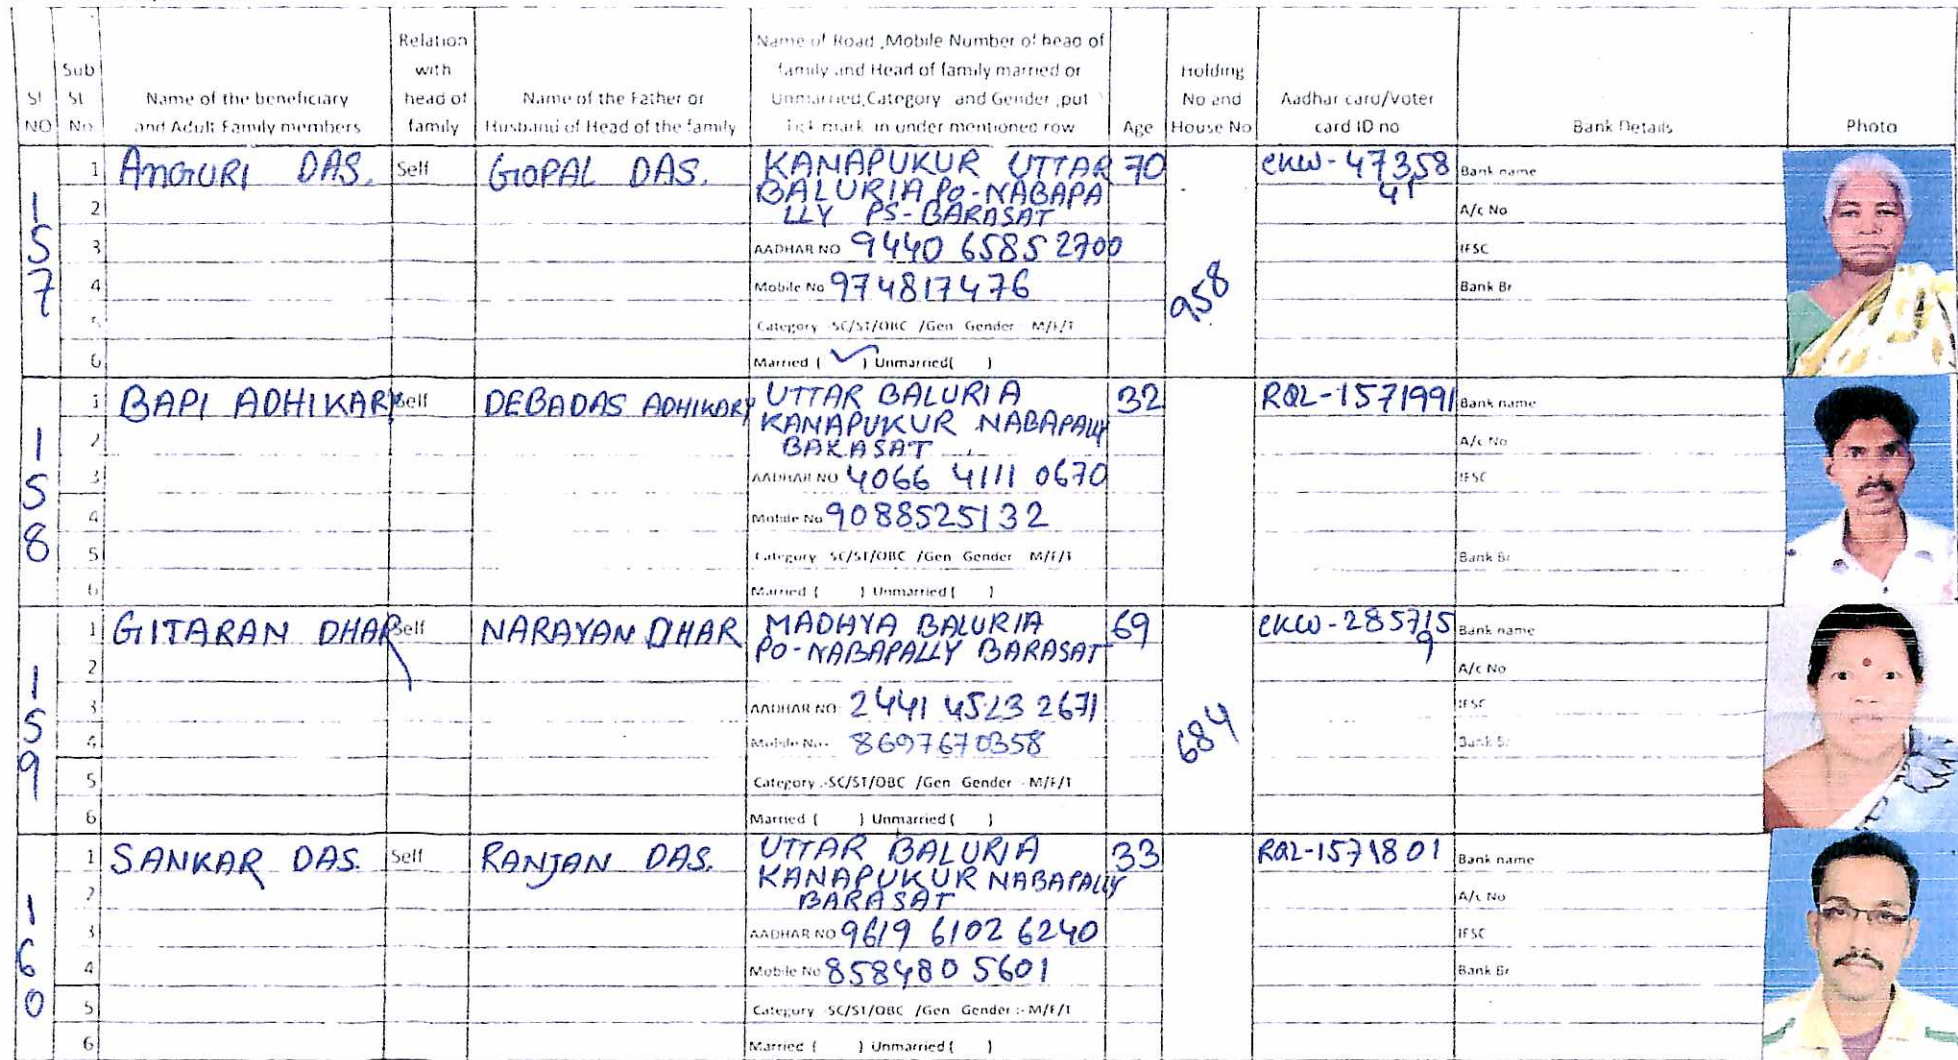 Sl NO
Sub Sl No
Name of the beneficiary and Adult Family members
Relation with head of family
Name of the Father or Husband of Head of the family
Name of Road ,Mobile Number of head of family and Head of family married or Unmarried,Category and Gender ,put Tick mark in under mentioned row
Age
Holding No and House No
Aadhar card/Voter card ID no
Bank Details
Photo
157
1 ANGURI DAS. Self GOPAL DAS. KANAPUKUR UTTAR 70 958 CKW-47358 Bank name
2 BALURIA PO-NABAPA 41 A/c No
LLY PS-BARASAT
3 AADHAR NO 9440 6585 2700 IFSC
4 Mobile No 974817476 Bank Br
5 Category -SC/ST/OBC /Gen Gender M/F/T
6 Married ( ✓ ) Unmarried( )
158
1 BAPI ADHIKARY Self DEBADAS ADHIKARY UTTAR BALURIA 32 RQL-1571991 Bank name
2 KANAPUKUR NABAPALLY A/c No
BARASAT
3 AADHAR NO 4066 4111 0670 IFSC
4 Mobile No 9088525132
5 Category SC/ST/OBC /Gen Gender M/F/T Bank Br
6 Married ( ) Unmarried ( )
159
1 GITARAN DHAR Self NARAYAN DHAR MADHYA BALURIA 69 684 CKW-285715 Bank name
2 PO-NABAPALLY BARASAT 9 A/c No
3 AADHAR NO 2441 4523 2671 IFSC
4 Mobile No- 8697670358 Bank Br
5 Category :-SC/ST/OBC /Gen Gender - M/F/T
6 Married ( ) Unmarried ( )
160
1 SANKAR DAS. Self RANJAN DAS. UTTAR BALURIA 33 RQL-1571801 Bank name
2 KANAPUKUR NABAPALLY A/c No
BARASAT
3 AADHAR NO 9619 6102 6240 IFSC
4 Mobile No 858480 5601 Bank Br
5 Category -SC/ST/OBC /Gen Gender :- M/F/T
6 Married ( ) Unmarried ( )